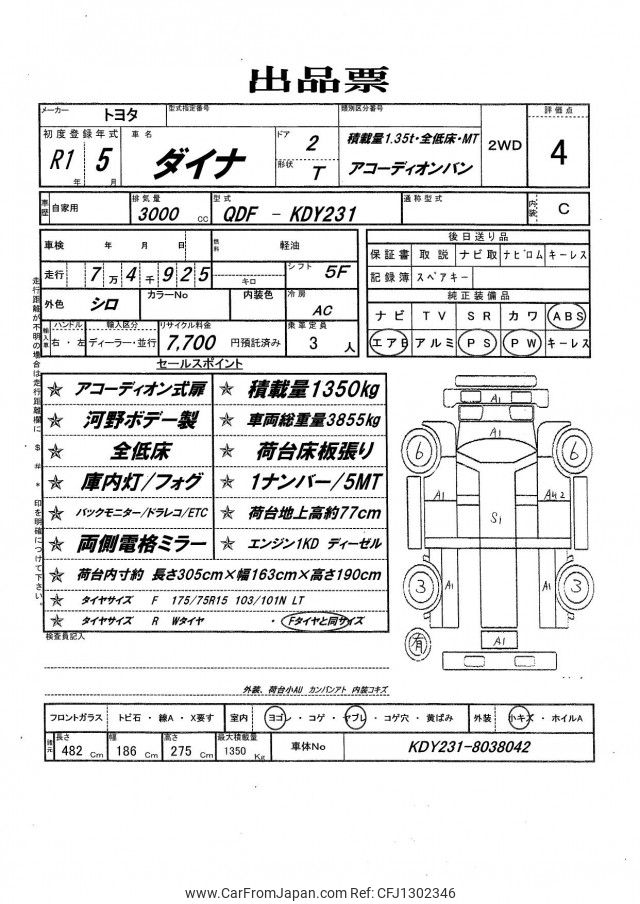 出品票
メーカー トヨタ 型式指定番号 類別区分番号 評価点
初度登録年式 車名 ドア 2 積載量1.35t・全低床・MT 2WD 4
R1年 5月 ダイナ 形状 T アコーディオンバン
車歴 自家用 排気量 3000 cc 型式 QDF - KDY231 通称型式 内装 C
車検 年 月 日 燃料 軽油 後日送り品
保証書 取説 ナビ取 ナビロム キーレス
走行 7万4千925 キロ シフト 5F 記録簿 スペアキー
外色 シロ カラーNo 内装色 冷房 AC 純正装備品
ナビ TV SR カワ ABS
輸入車 ハンドル 右・左 輸入区分 ディーラー・並行 リサイクル料金 7,700 円預託済み 乗車定員 3 人 エアB アルミ PS PW キーレス
セールスポイント
☆ アコーディオン式扉 ☆ 積載量1350kg
☆ 河野ボデー製 ☆ 車両総重量3855kg
☆ 全低床 ☆ 荷台床板張り
☆ 庫内灯/フォグ ☆ 1ナンバー/5MT
☆ バックモニター/ドラレコ/ETC ☆ 荷台地上高約77cm
☆ 両側電格ミラー ☆ エンジン1KD ディーゼル
☆ 荷台内寸約 長さ305cm×幅163cm×高さ190cm
☆ タイヤサイズ F 175/75R15 103/101N LT
☆ タイヤサイズ R Wタイヤ ・ Fタイヤと同サイズ
走行距離が不明の場合は走行距離欄に $ # * 印を明確につけて下さい。
A1
A1
6 6
A1 AU2
S1
3 A1 A1 3
有 A1
検査員記入
外装、荷台小AU カンバンアト 内装コキズ
フロントガラス トビ石・線A・X要す 室内 ヨゴレ・コゲ・ヤブレ・コゲ穴・黄ばみ 外装 小キズ・ホイルA
諸元 長さ 482 Cm 幅 186 Cm 高さ 275 Cm 最大積載量 1350 Kg 車体No KDY231-8038042
www.CarFromJapan.com Ref: CFJ1302346